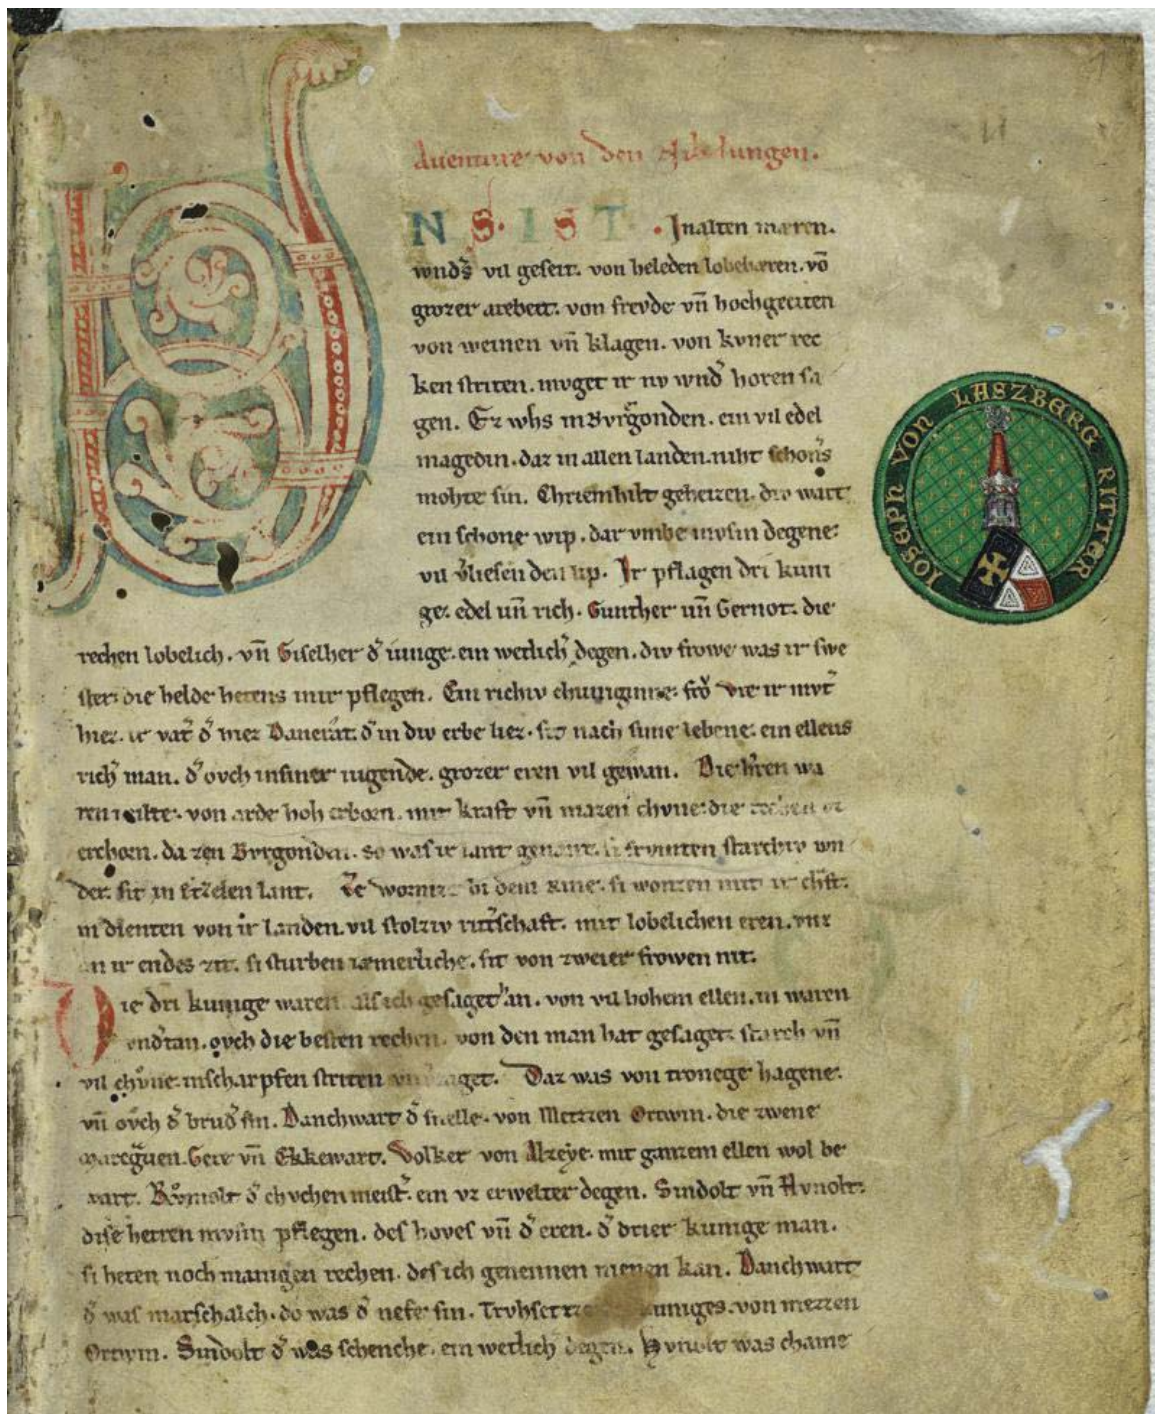 Auenture von den Nibelungen.
UNS. IST. Inalten mæren.
wnds vil geseit. von heleden lobebæren. võ
grozer arebeit. von frevde vñ hochgeciten
von weinen vñ klagen. von kvner rec
ken striten. mvget ir nv wnd horen sa
gen. Ez whs in Bvrgonden. ein vil edel
magedin. daz in allen landen. niht schons
mohte sin. Chriemhilt geheizen. div wart
ein schone wip. dar vmbe mvsin degene.
vil vliesen den lip. Ir pflagen dri kuni
ge. edel uñ rich. Gunther uñ Gernot. die
rechen lobelich. vñ Giselher d iunge. ein wetlich degen. div frowe was ir swe
ster. die helde hetens inir pflegen. Ein richiv chuniginne. frö Vte ir mvt
hiez. ir vat d hiez Dancrat. d in div erbe liez. sit nach sime lebene. ein ellens
rich man. d ovch insiner iugende. grozer eren vil gewan. Die hren wa
ren milte. von arde hoh erborn. mit kraft vñ mazen chvne. die rechen vz
erchorn. da zen Bvrgonden. so was ir lant genant. si frvmten starchiv wn
der. sit in Etzelen lant. Ze Wormze bi dem Rine. si wonten mit ir chrft.
in dienten von ir landen. vil stolziv ritschaft. mit lobelichen eren. vnz
an ir endes zit. si sturben iæmerliche. sit von zweier frowen nit.
Die dri kunige waren. als ich gesaget han. von vil hohem ellen. in waren
vndtan. ovch die besten rechen. von den man hat gesaget. starch vñ
vil chvne. inscharpfen striten vnverzaget. Daz was von tronege hagene.
vñ ovch d brud sin. Danchwart d snelle. von Metzen Ortwin. die zwene
marcgven. Gere vñ Ekkewart. Volker von Alzeye. mit ganzem ellen wol be
wart. Rvmolt d chvchenmeist. ein vz erwelter degen. Sindolt vñ Hvnolt.
dise herren mvsin pflegen. des hoves vñ d eren. d drier kunige man.
si heten noch manigen rechen. des ich genennen nienen kan. Danchwart
d was marschalch. do was d nefe sin. Trvhsetze kuniges. von mezzen
Ortwin. Sindolt d was schenche. ein wetlich degen. Hvnolt was chame
IOSEPH VON LASZBERG RITTER